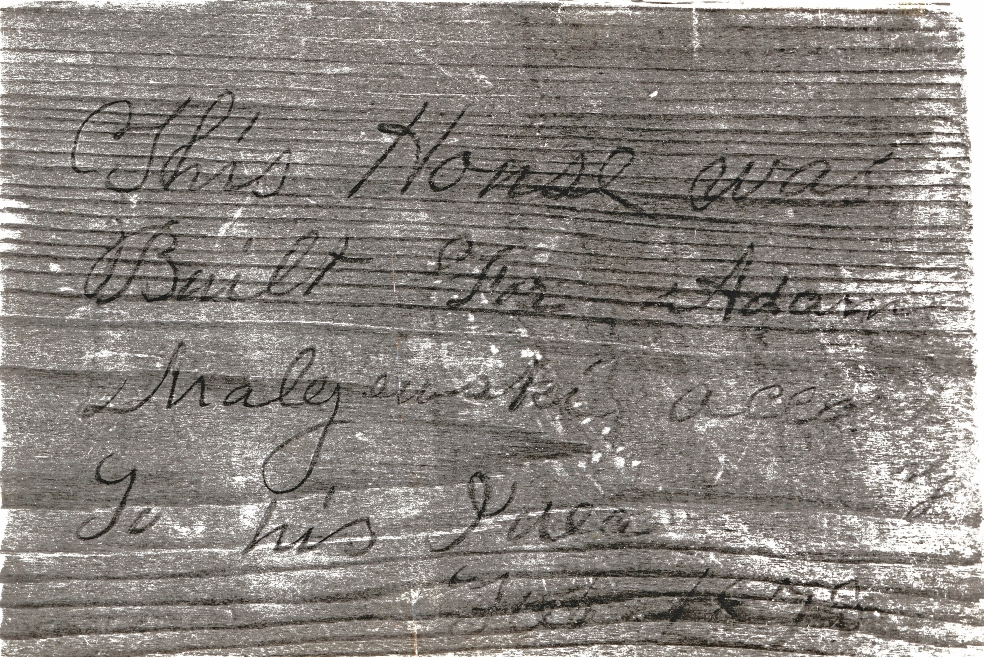 This House was
Built For Adam
Malezewskis accor
To his Idea